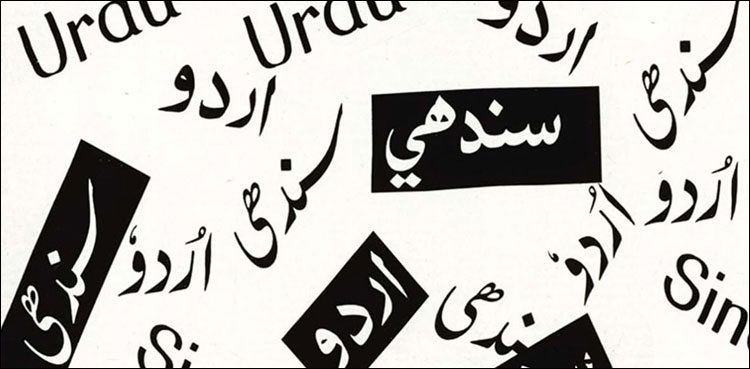 Urdu
Urdu
اردو
سندھی
اردو
سندھي
سندھی
اُردوَ
اُردوُ
اُردوُ
سندھی
سندھی
اردو
Sin
Si